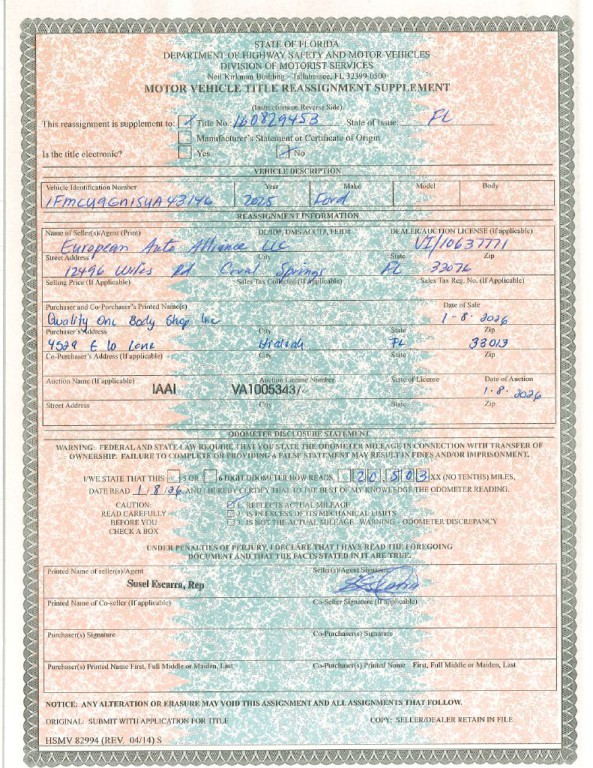 STATE OF FLORIDA
DEPARTMENT OF HIGHWAY SAFETY AND MOTOR VEHICLES
DIVISION OF MOTORIST SERVICES
Neil Kirkman Building - Tallahassee, FL 32399-0500
MOTOR VEHICLE TITLE REASSIGNMENT SUPPLEMENT
(Instructions on Reverse Side)
This reassignment is supplement to: Title No. 160829453 State of Issue: FL
Manufacturer's Statement or Certificate of Origin
Is the title electronic? Yes No
VEHICLE DESCRIPTION
Vehicle Identification Number Year Make Model Body
2025 Ford
REASSIGNMENT INFORMATION
Name of Seller(s)/Agent (Print) DEALER/AUCTION LICENSE (If applicable)
European Auto Alliance LLC VI/10637771
Street Address City State Zip
12496 Wiles Rd Coral Springs FL 33076
Selling Price (If Applicable) Sales Tax Collected (If applicable) Sales Tax Reg. No. (If Applicable)
Purchaser and Co-Purchaser's Printed Name(s) Date of Sale
Quality One Body Shop Inc 1-8-2026
Purchaser's Address City State Zip
4529 E 10 Lane Hialeah FL 33013
Co-Purchaser's Address (If applicable) City State Zip
Auction Name (If applicable) Auction License Number State of License Date of Auction
IAAI VA1005343/ 1-8-2026
Street Address City State Zip
ODOMETER DISCLOSURE STATEMENT
WARNING: FEDERAL AND STATE LAW REQUIRE THAT YOU STATE THE ODOMETER MILEAGE IN CONNECTION WITH TRANSFER OF
OWNERSHIP. FAILURE TO COMPLETE OR PROVIDING A FALSE STATEMENT MAY RESULT IN FINES AND/OR IMPRISONMENT.
I/WE STATE THAT THIS 5 OR 6 DIGIT ODOMETER NOW READS 20,503.XX (NO TENTHS) MILES,
DATE READ 1/8/26 AND I HEREBY CERTIFY THAT TO THE BEST OF MY KNOWLEDGE THE ODOMETER READING.
CAUTION: 1. REFLECTS ACTUAL MILEAGE
READ CAREFULLY 2. IS IN EXCESS OF ITS MECHANICAL LIMITS
BEFORE YOU 3. IS NOT THE ACTUAL MILEAGE. WARNING - ODOMETER DISCREPANCY
CHECK A BOX
UNDER PENALTIES OF PERJURY, I DECLARE THAT I HAVE READ THE FOREGOING
DOCUMENT AND THAT THE FACTS STATED IN IT ARE TRUE.
Printed Name of seller(s)/Agent Seller(s)/Agent Signature
Susel Escarra, Rep
Printed Name of Co-seller (If applicable) Co-Seller Signature (If applicable)
Purchaser(s) Signature Co-Purchaser(s) Signature
Purchaser(s) Printed Name First, Full Middle or Maiden, Last Co-Purchaser(s) Printed Name First, Full Middle or Maiden, Last
NOTICE: ANY ALTERATION OR ERASURE MAY VOID THIS ASSIGNMENT AND ALL ASSIGNMENTS THAT FOLLOW.
ORIGINAL: SUBMIT WITH APPLICATION FOR TITLE COPY: SELLER/DEALER RETAIN IN FILE
HSMV 82994 (REV. 04/14) S